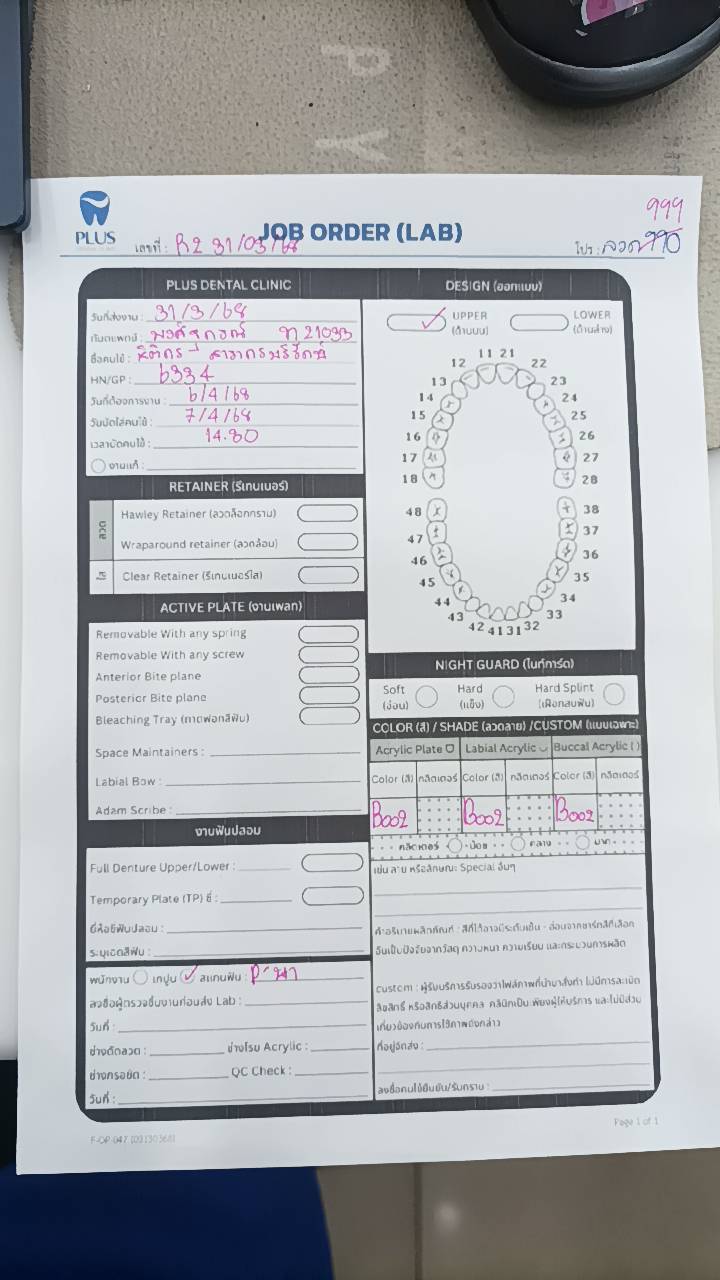 PLUS
JOB ORDER (LAB)
เลขที่ : R2 31/03/68
999
โปร : ลวด 990
PLUS DENTAL CLINIC
วันที่ส่งงาน : 31/3/68
ทันตแพทย์ : ท 21033
ชื่อคนไข้ :
HN/GP : 6334
วันที่ต้องการงาน : 6/4/68
วันนัดใส่คนไข้ : 7/4/68
เวลานัดคนไข้ : 14.30
งานแก้ :
RETAINER (รีเทนเนอร์)
ลวด
Hawley Retainer (ลวดล็อกกราม)
Wraparound retainer (ลวดล้อม)
ใส
Clear Retainer (รีเทนเนอร์ใส)
ACTIVE PLATE (งานเพลท)
Removable With any spring
Removable With any screw
Anterior Bite plane
Posterior Bite plane
Bleaching Tray (ถาดฟอกสีฟัน)
Space Maintainers :
Labial Bow :
Adam Scribe :
งานฟันปลอม
Full Denture Upper/Lower :
Temporary Plate (TP) ซี่ :
ยี่ห้อซี่ฟันปลอม :
ระบุเฉดสีฟัน :
พนักงาน เทปูน สแกนฟัน :
ลงชื่อผู้ตรวจชิ้นงานก่อนส่ง Lab :
วันที่ :
ช่างดัดลวด : ช่างโรย Acrylic :
ช่างกรอขัด : QC Check :
วันที่ :
DESIGN (ออกแบบ)
UPPER (ด้านบน) LOWER (ด้านล่าง)
11 21
12 22
13 23
14 24
15 25
16 26
17 27
18 28
48 38
47 37
46 36
45 35
44 34
43 33
42 41 31 32
NIGHT GUARD (ไนท์การ์ด)
Soft (อ่อน) Hard (แข็ง) Hard Splint (เฝือกสบฟัน)
COLOR (สี) / SHADE (ลวดลาย) /CUSTOM (แบบเฉพาะ)
Acrylic Plate Labial Acrylic Buccal Acrylic ( )
Color (สี) กลิตเตอร์ Color (สี) กลิตเตอร์ Color (สี) กลิตเตอร์
B002 B002 B002
กลิตเตอร์ น้อย กลาง มาก
เช่น ลาย หรือลักษณะ Special อื่นๆ
คำอธิบายผลิตภัณฑ์ : สีที่ได้อาจมีระดับเข้ม - อ่อนจากชาร์ตสีที่เลือก
อันเป็นปัจจัยจากวัสดุ ความหนา ความเรียบ และกระบวนการผลิต
custom : ผู้รับบริการรับรองว่าไฟล์ภาพที่นำมาสั่งทำ ไม่มีการละเมิด
ลิขสิทธิ์ หรือสิทธิส่วนบุคคล คลินิกเป็นเพียงผู้ให้บริการ และไม่มีส่วน
เกี่ยวข้องกับการใช้ภาพดังกล่าว
ที่อยู่จัดส่ง :
ลงชื่อคนไข้ยืนยัน/รับทราบ :
Page 1 of 1